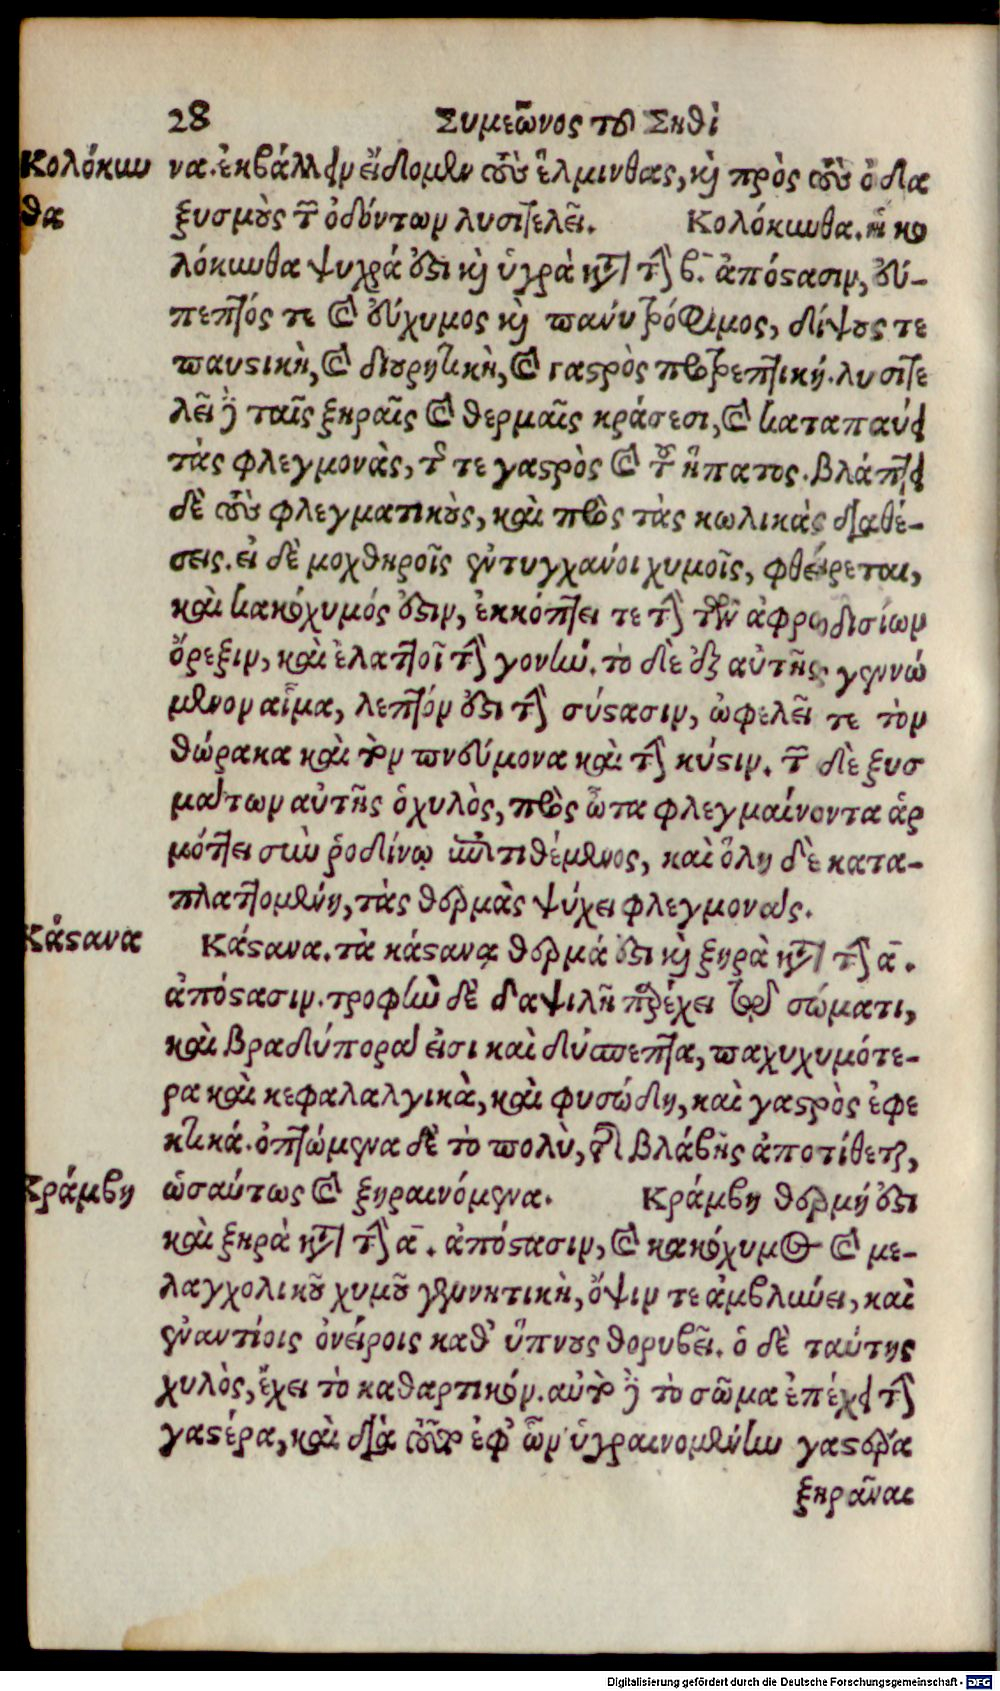 28 Συμεῶνος τοῦ Σηθὶ
Κολόκυν
θα
να. ἐκβάλλειν εἴδομεν τοὺς ἕλμινθας, καὶ πρὸς τοὺς ὀδα
ξυσμοὺς τῶν ὀδόντων λυσιτελεῖ. Κολόκυνθα. ἡ κο
λόκυνθα ψυχρά ἐστι καὶ ὑγρὰ κατὰ τὴν β. ἀπόστασιν, εὔ-
πεπτός τε καὶ εὔχυμος καὶ πάνυ τρόφιμος, δίψους τε
παυστικὴ, καὶ διουρητικὴ, καὶ γαστρὸς προτρεπτική. λυσιτε
λεῖ δὲ ταῖς ξηραῖς καὶ θερμαῖς κράσεσι, καὶ καταπαύει
τὰς φλεγμονὰς, τῆς τε γαστρὸς καὶ τοῦ ἥπατος. βλάπτει
δὲ τοὺς φλεγματικοὺς, καὶ πρὸς τὰς κωλικὰς διαθέ-
σεις. εἰ δὲ μοχθηροῖς ἐντυγχάνοι χυμοῖς, φθείρεται,
καὶ κακόχυμός ἐστιν, ἐκκόπτει τε τὴν τῶν ἀφροδισίων
ὄρεξιν, καὶ ἐλαττοῖ τὴν γονήν. τὸ δὲ ἐξ αὐτῆς γεννώ
μενον αἷμα, λεπτόν ἐστι τὴν σύστασιν, ὠφελεῖ τε τὸν
θώρακα καὶ τὸν πνεύμονα καὶ τὴν κύστιν. τῶν δὲ ξυσ
μάτων αὐτῆς ὁ χυλὸς, πρὸς ὦτα φλεγμαίνοντα ἁρ
μόττει σὺν ῥοδίνῳ ἐπιτιθέμενος, καὶ ὅλη δὲ κατα-
πλαττομένη, τὰς θερμὰς ψύχει φλεγμονάς.
Κάστανα
Κάστανα. τὰ κάστανα θερμά ἐστι καὶ ξηρὰ κατὰ τὴν α.
ἀπόστασιν. τροφὴν δὲ δαψιλῆ παρέχει τῷ σώματι,
καὶ βραδύπορά εἰσι καὶ δύσπεπτα, παχυχυμότε-
ρα καὶ κεφαλαλγικὰ, καὶ φυσώδη, καὶ γαστρὸς ἐφε
κτικά. ὀπτώμενα δὲ τὸ πολὺ, τῆς βλάβης ἀποτίθεται,
Κράμβη
ὡσαύτως καὶ ξηραινόμενα. Κράμβη θερμή ἐστι
καὶ ξηρὰ κατὰ τὴν α. ἀπόστασιν, καὶ κακόχυμος καὶ με-
λαγχολικοῦ χυμοῦ γεννητικὴ, ὄψιν τε ἀμβλύνει, καὶ
ἐναντίοις ὀνείροις καθ’ ὕπνους θορυβεῖ. ὁ δὲ ταύτης
χυλὸς, ἔχει τὸ καθαρτικόν. αὐτὸ δὲ τὸ σῶμα ἐπέχει τὴν
γαστέρα, καὶ διὰ τοῦτο ἐφ’ ὧν ὑγραινομένην γαστέρα
ξηρᾶναι
Digitalisierung gefördert durch die Deutsche Forschungsgemeinschaft - DFG